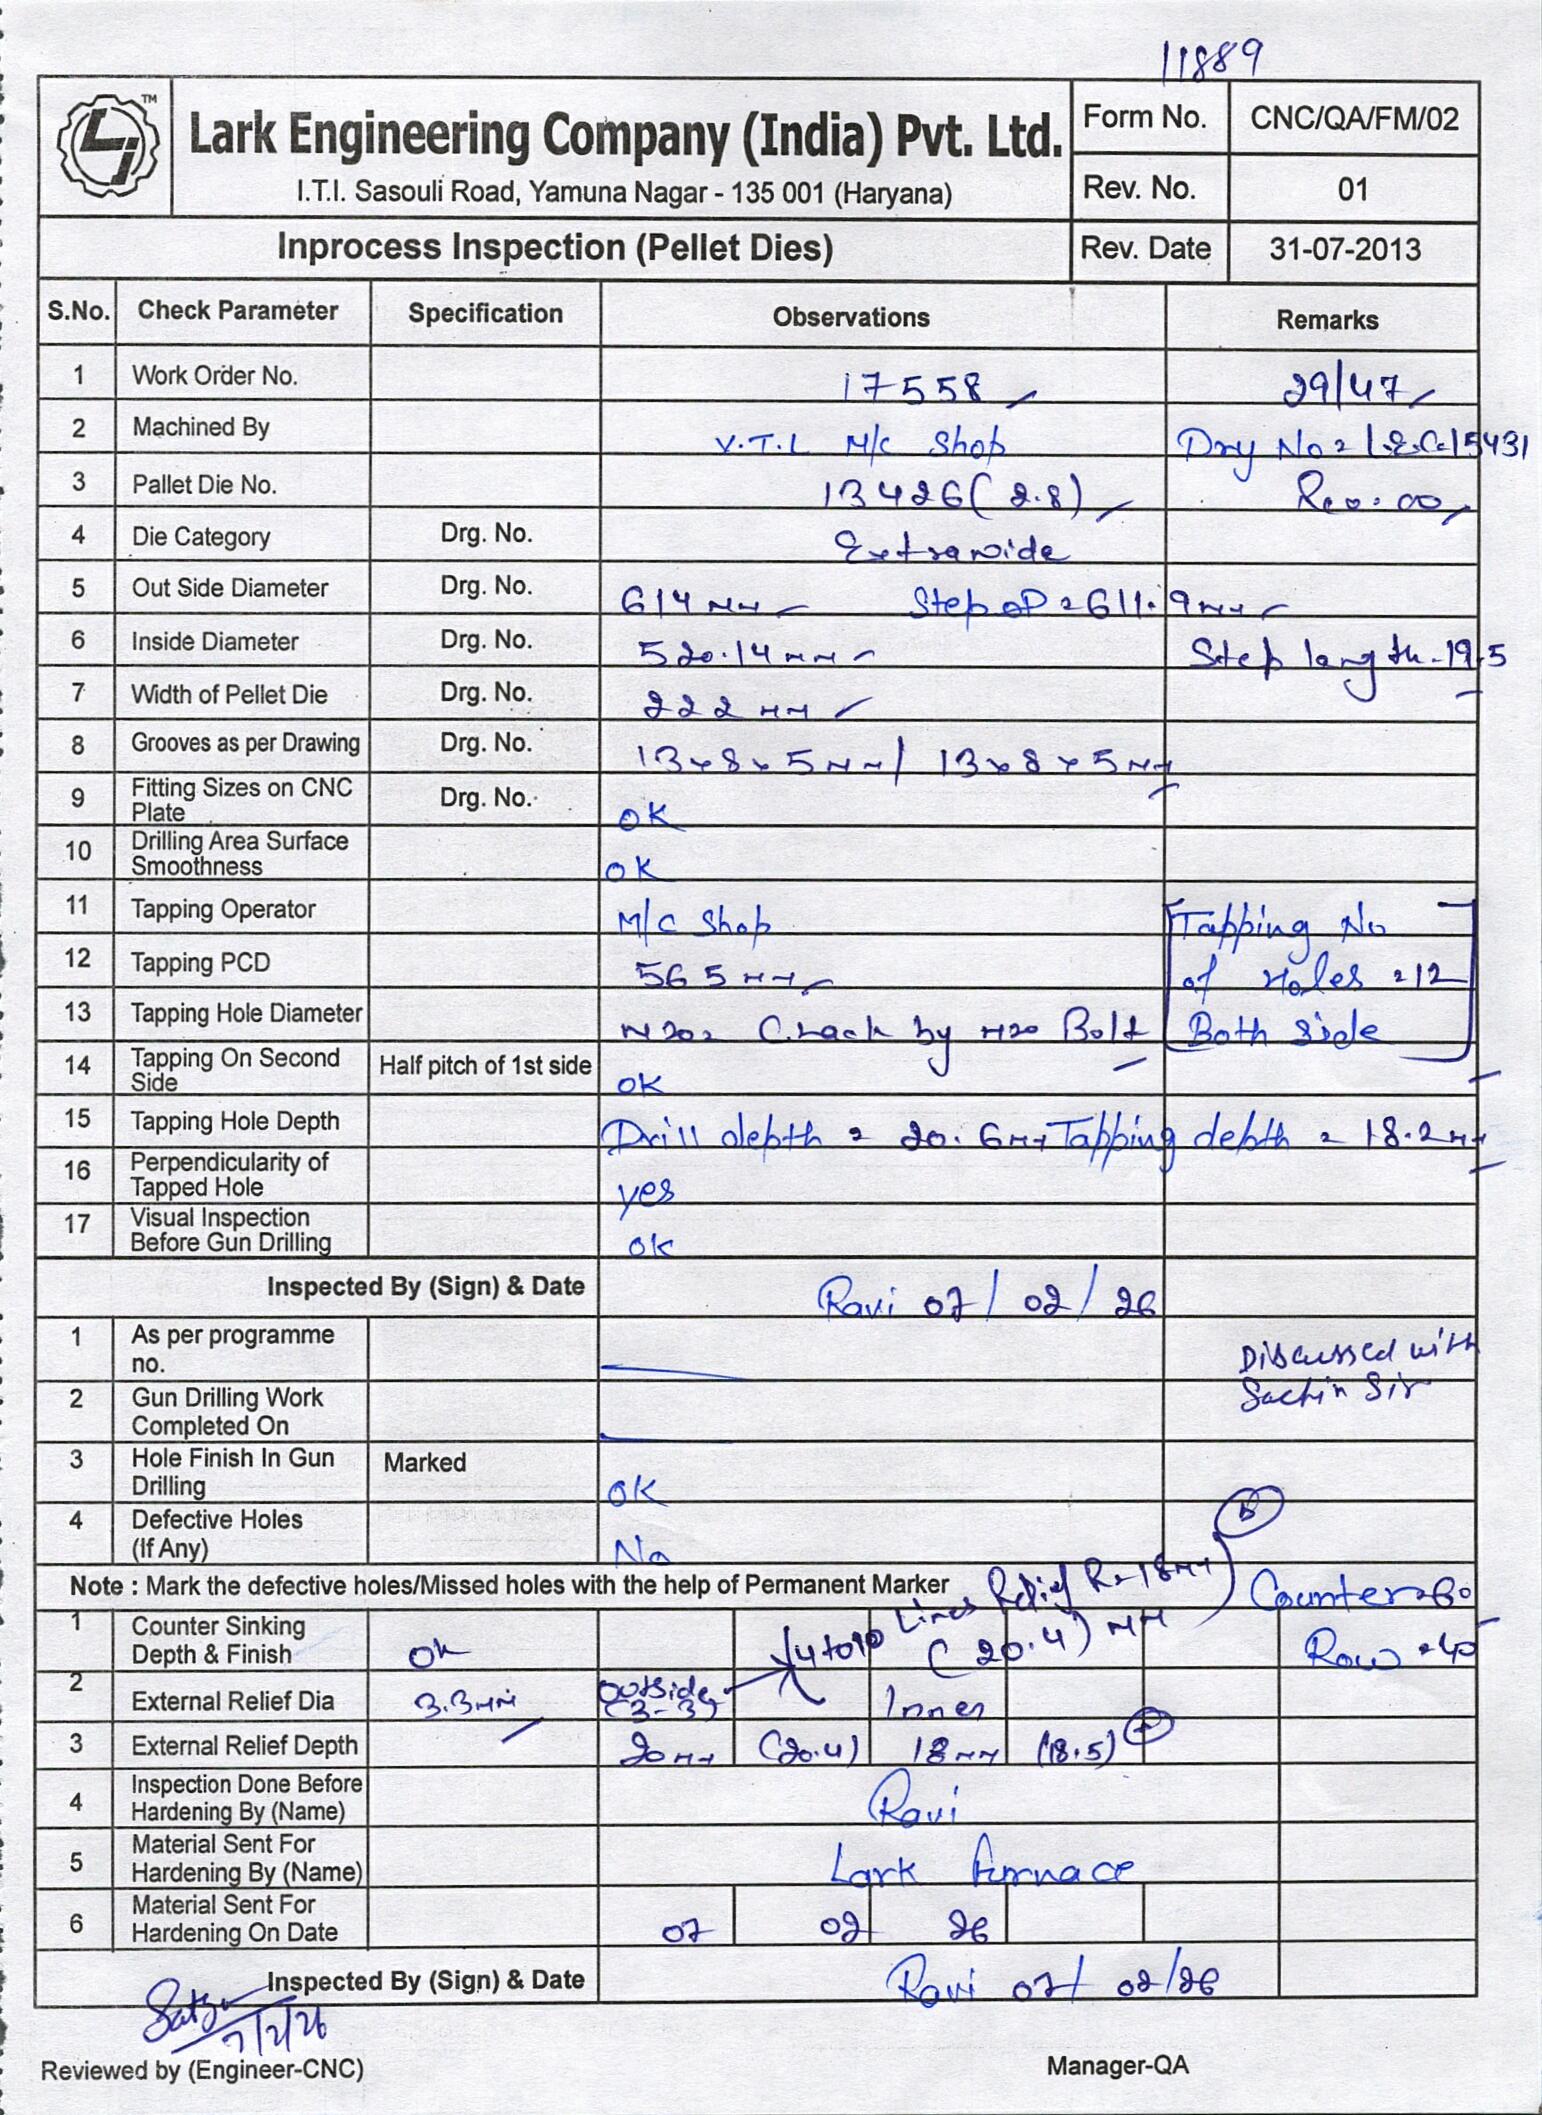 11889
TM
Lark Engineering Company (India) Pvt. Ltd.
I.T.I. Sasouli Road, Yamuna Nagar - 135 001 (Haryana)
Form No. CNC/QA/FM/02
Rev. No. 01
Inprocess Inspection (Pellet Dies) Rev. Date 31-07-2013
S.No. Check Parameter Specification Observations Remarks
1 Work Order No. 17558 29/47
2 Machined By V.T.L M/c Shop Drg No = L.E.C-15431
3 Pallet Die No. 13426 (2.8) Rev. 00
4 Die Category Drg. No. Extrawide
5 Out Side Diameter Drg. No. 614 mm Step OD = 611.9mm
6 Inside Diameter Drg. No. 520.14 mm Step length-19.5
7 Width of Pellet Die Drg. No. 222 mm
8 Grooves as per Drawing Drg. No. 13x8x5mm / 13x8x5mm
9 Fitting Sizes on CNC Plate Drg. No. OK
10 Drilling Area Surface Smoothness OK
11 Tapping Operator M/C Shop Tapping No
12 Tapping PCD 565 mm of Holes = 12
13 Tapping Hole Diameter M20 = Check by M20 Bolt Both Side
14 Tapping On Second Side Half pitch of 1st side OK
15 Tapping Hole Depth Drill depth = 20.6mm Tapping depth = 18.2mm
16 Perpendicularity of Tapped Hole yes
17 Visual Inspection Before Gun Drilling OK
Inspected By (Sign) & Date Ravi 07/02/26
1 As per programme no. Discussed with
2 Gun Drilling Work Completed On Sachin Sir
3 Hole Finish In Gun Drilling Marked OK
4 Defective Holes (If Any) No
Note : Mark the defective holes/Missed holes with the help of Permanent Marker Lines Relief R-18mm Counter=60
1 Counter Sinking Depth & Finish OK (20.4) mm Row = 40
2 External Relief Dia 3.3mm Outside (3-3) Inner
3 External Relief Depth 20mm (20.4) 18mm (18.5)
4 Inspection Done Before Hardening By (Name) Ravi
5 Material Sent For Hardening By (Name) Lark Furnace
6 Material Sent For Hardening On Date 07 02 26
Inspected By (Sign) & Date Ravi 07/02/26
7/2/26
Reviewed by (Engineer-CNC) Manager-QA